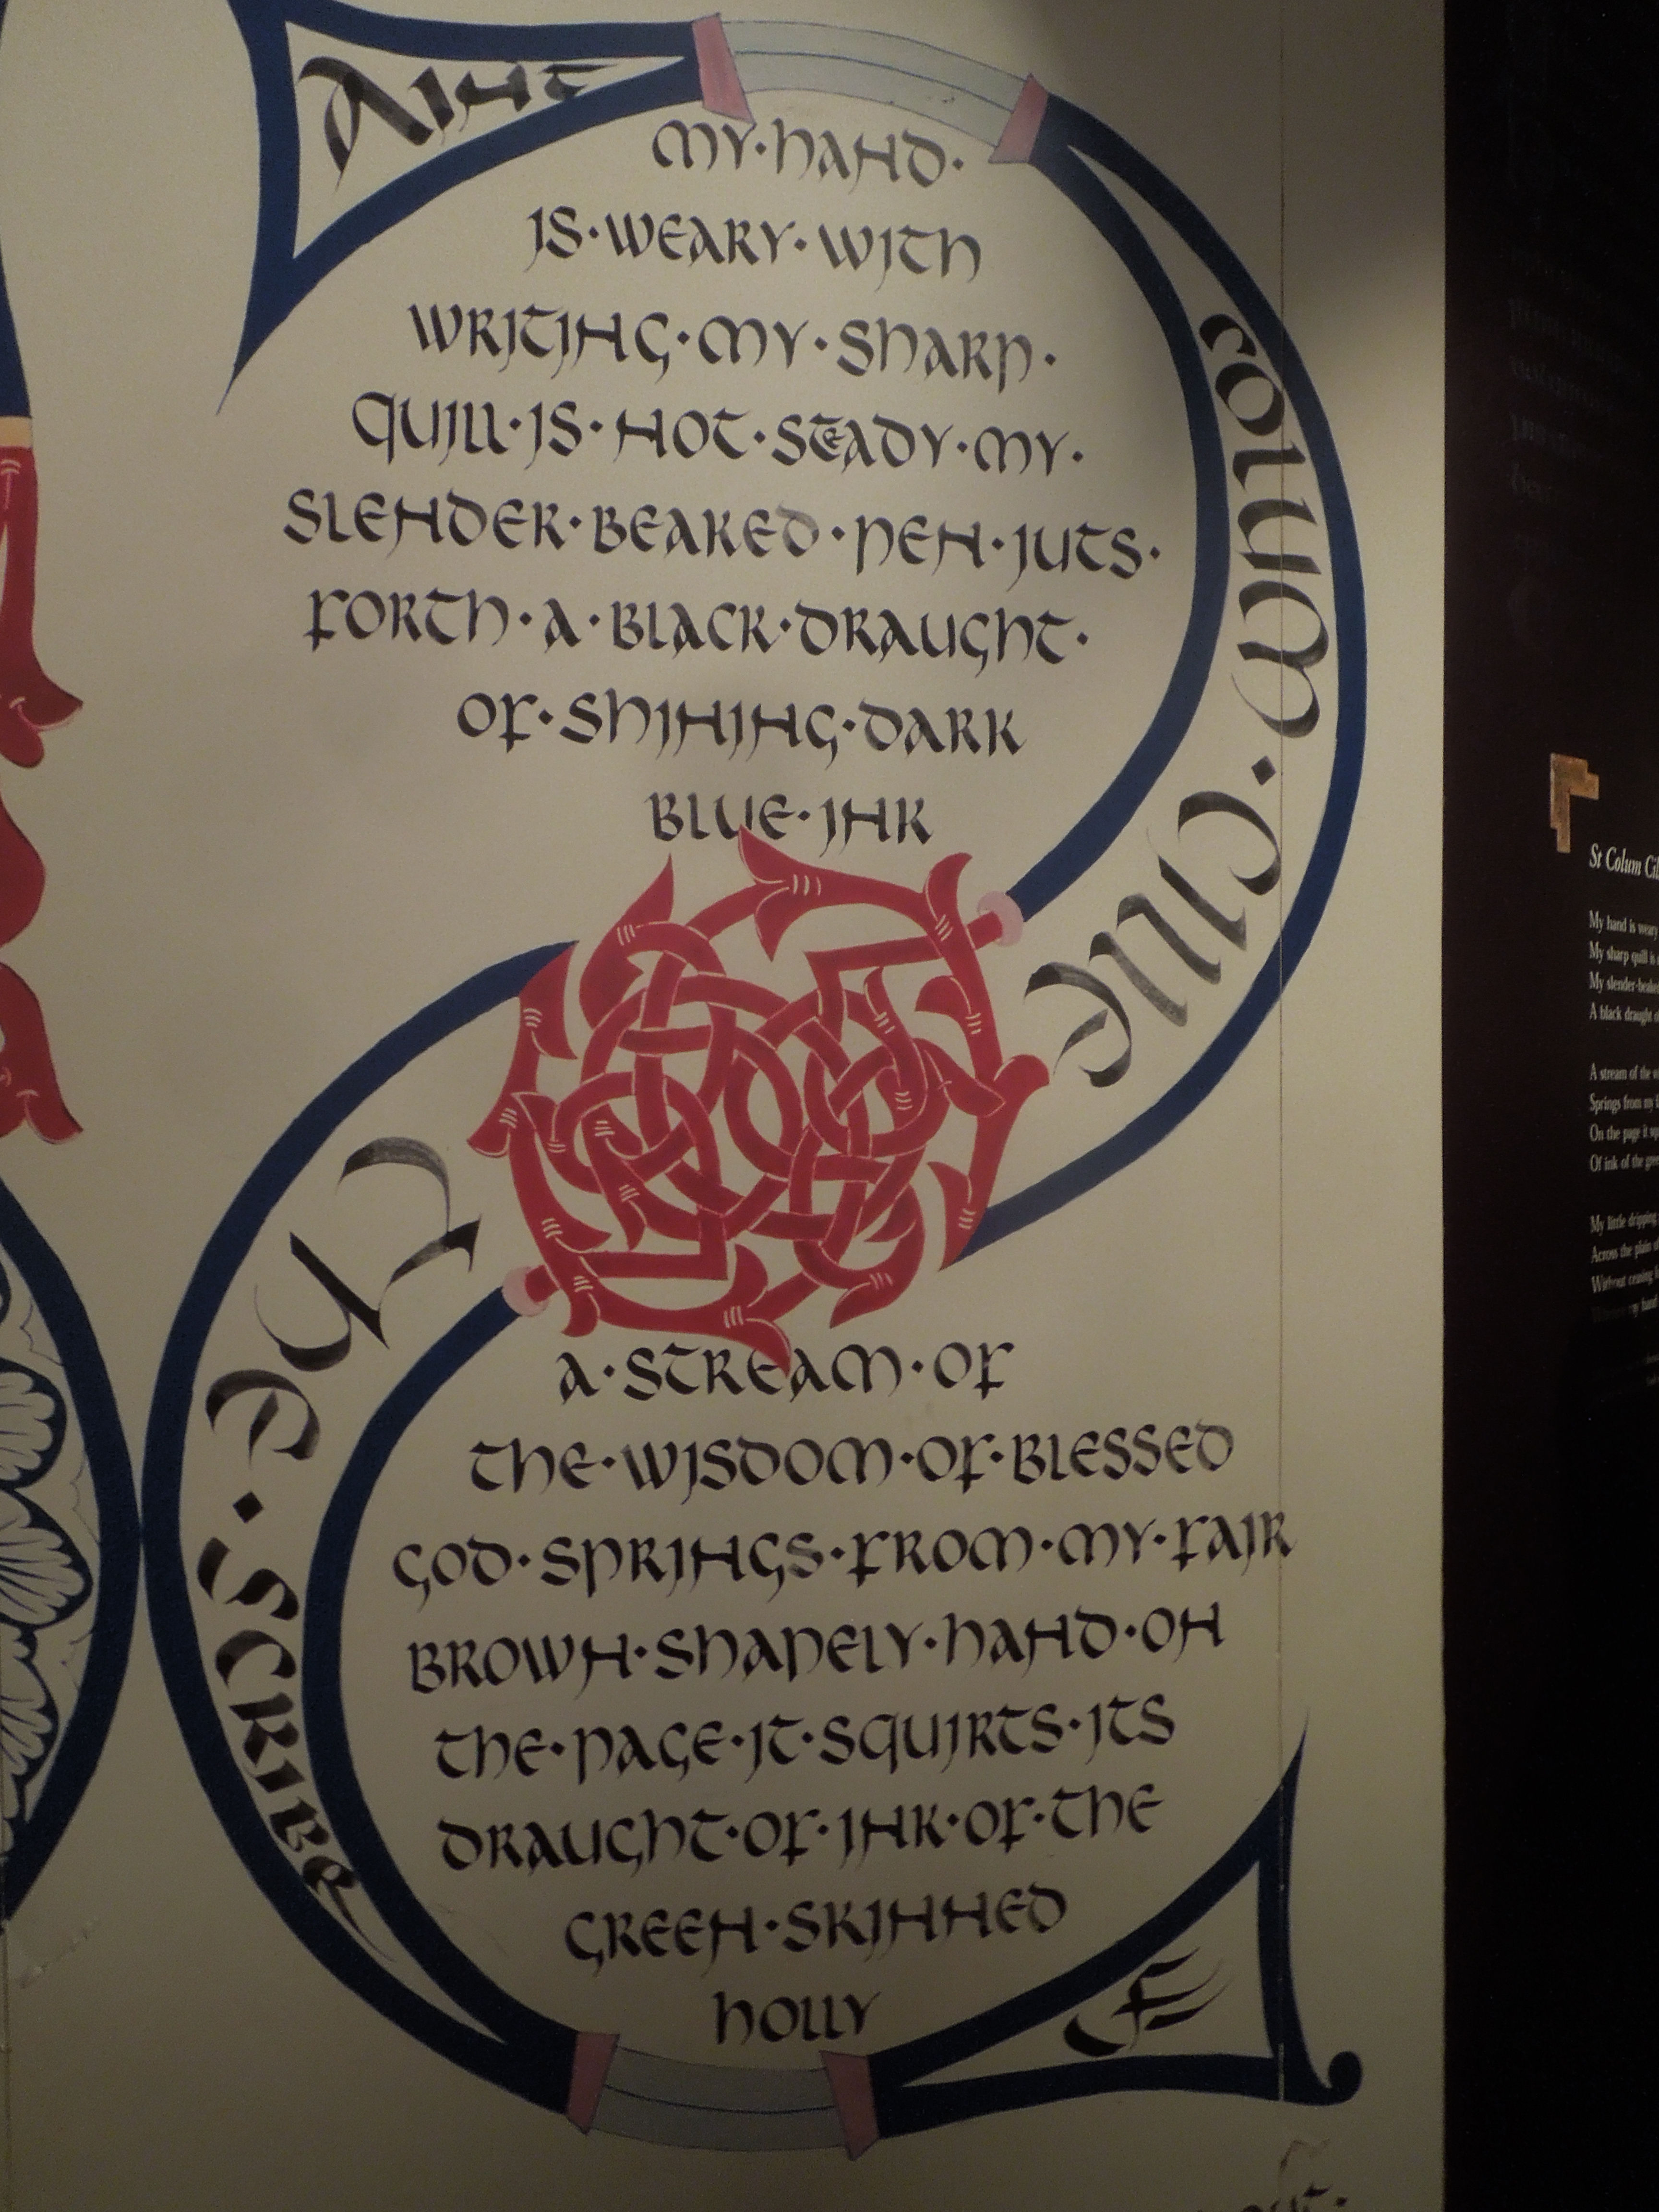 MY·HAND·
IS·WEARY·WITH
WRITING·MY·SHARP·
QUILL·IS·NOT·STEADY·MY·
SLENDER·BEAKED·PEN·JUTS·
FORTH·A·BLACK·DRAUGHT·
OF·SHINING·DARK
BLUE·INK
COLUM·CILLE
THE·SCRIBE
A·STREAM·OF
THE·WISDOM·OF·BLESSED
GOD·SPRINGS·FROM·MY·FAIR
BROWN·SHAPELY·HAND·ON
THE·PAGE·IT·SQUIRTS·ITS
DRAUGHT·OF·INK·OF·THE
GREEN·SKINNED
HOLLY
St Colum
My hand is weary
My sharp quill is
My
A black draught
A stream of the
Springs from my
On the page it
Of ink of the
My little dripping
Across the plain
Without